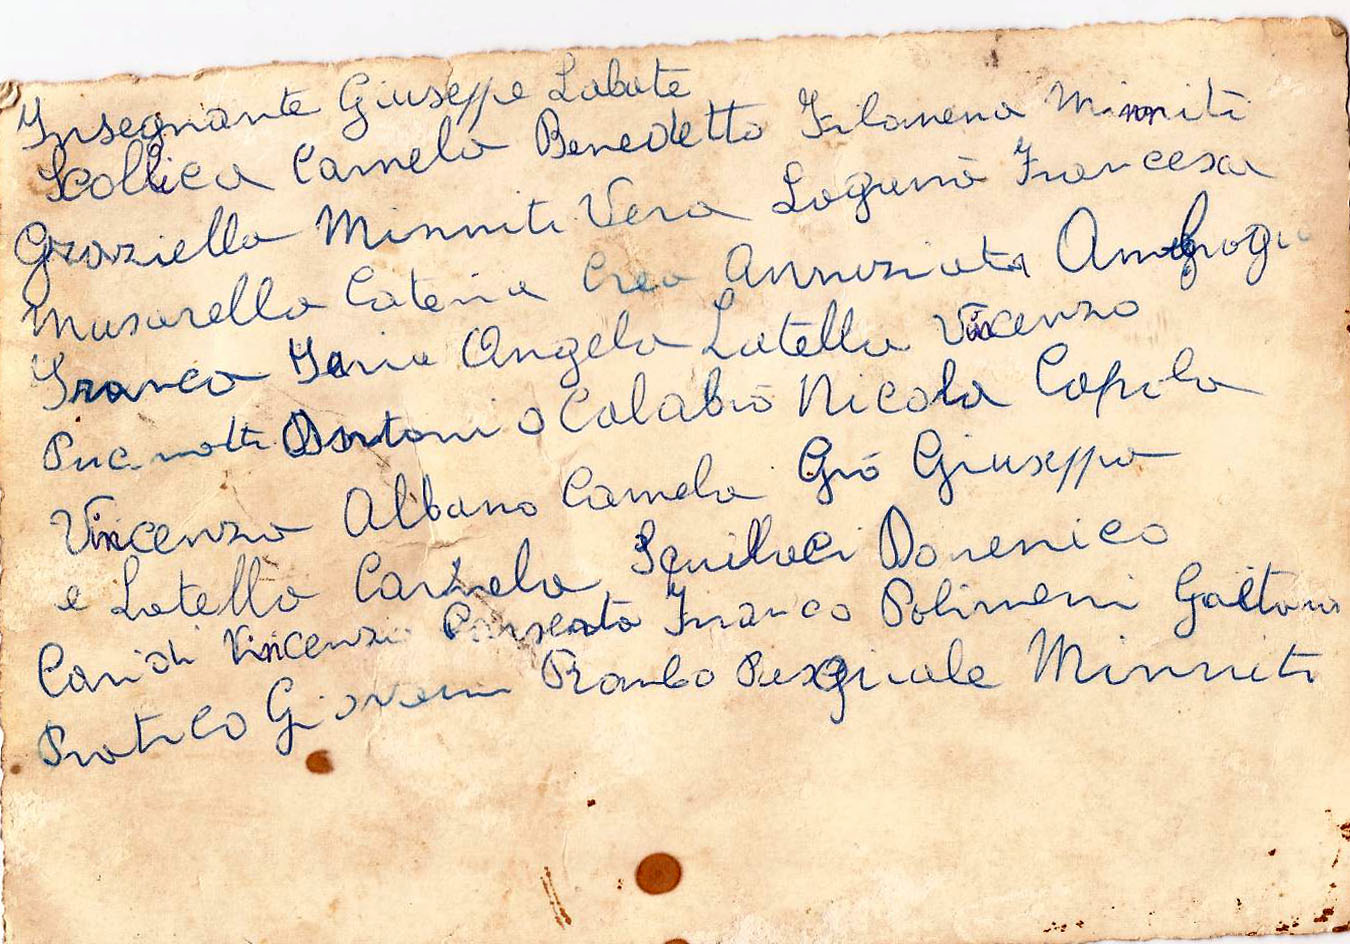 Insegnante Giuseppe Labate
Scollica Camela Benedetto Filomena Minniti
Graziella Minniti Vera Laganà Francesca
Musarella Cateria Crea Annunziata Ambrogio
Franca Angela Latella Vincenzo
Antonio Calabrò Nicola Capila
Vincenzo Albano Camela Giò Giuseppa
e Latella Carmela Squillaci Domenico
Caridi Vincenzo Franco Polimeni Gaetano
Pratico Giovanni Pasquale Minniti